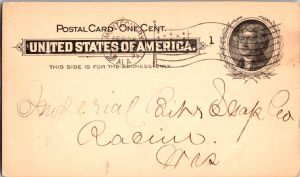 POSTAL CARD - ONE CENT.
UNITED STATES OF AMERICA.
THIS SIDE IS FOR THE ADDRESS ONLY.
ALA
1
Imperial Bit & Snap Co
Racine
Wis